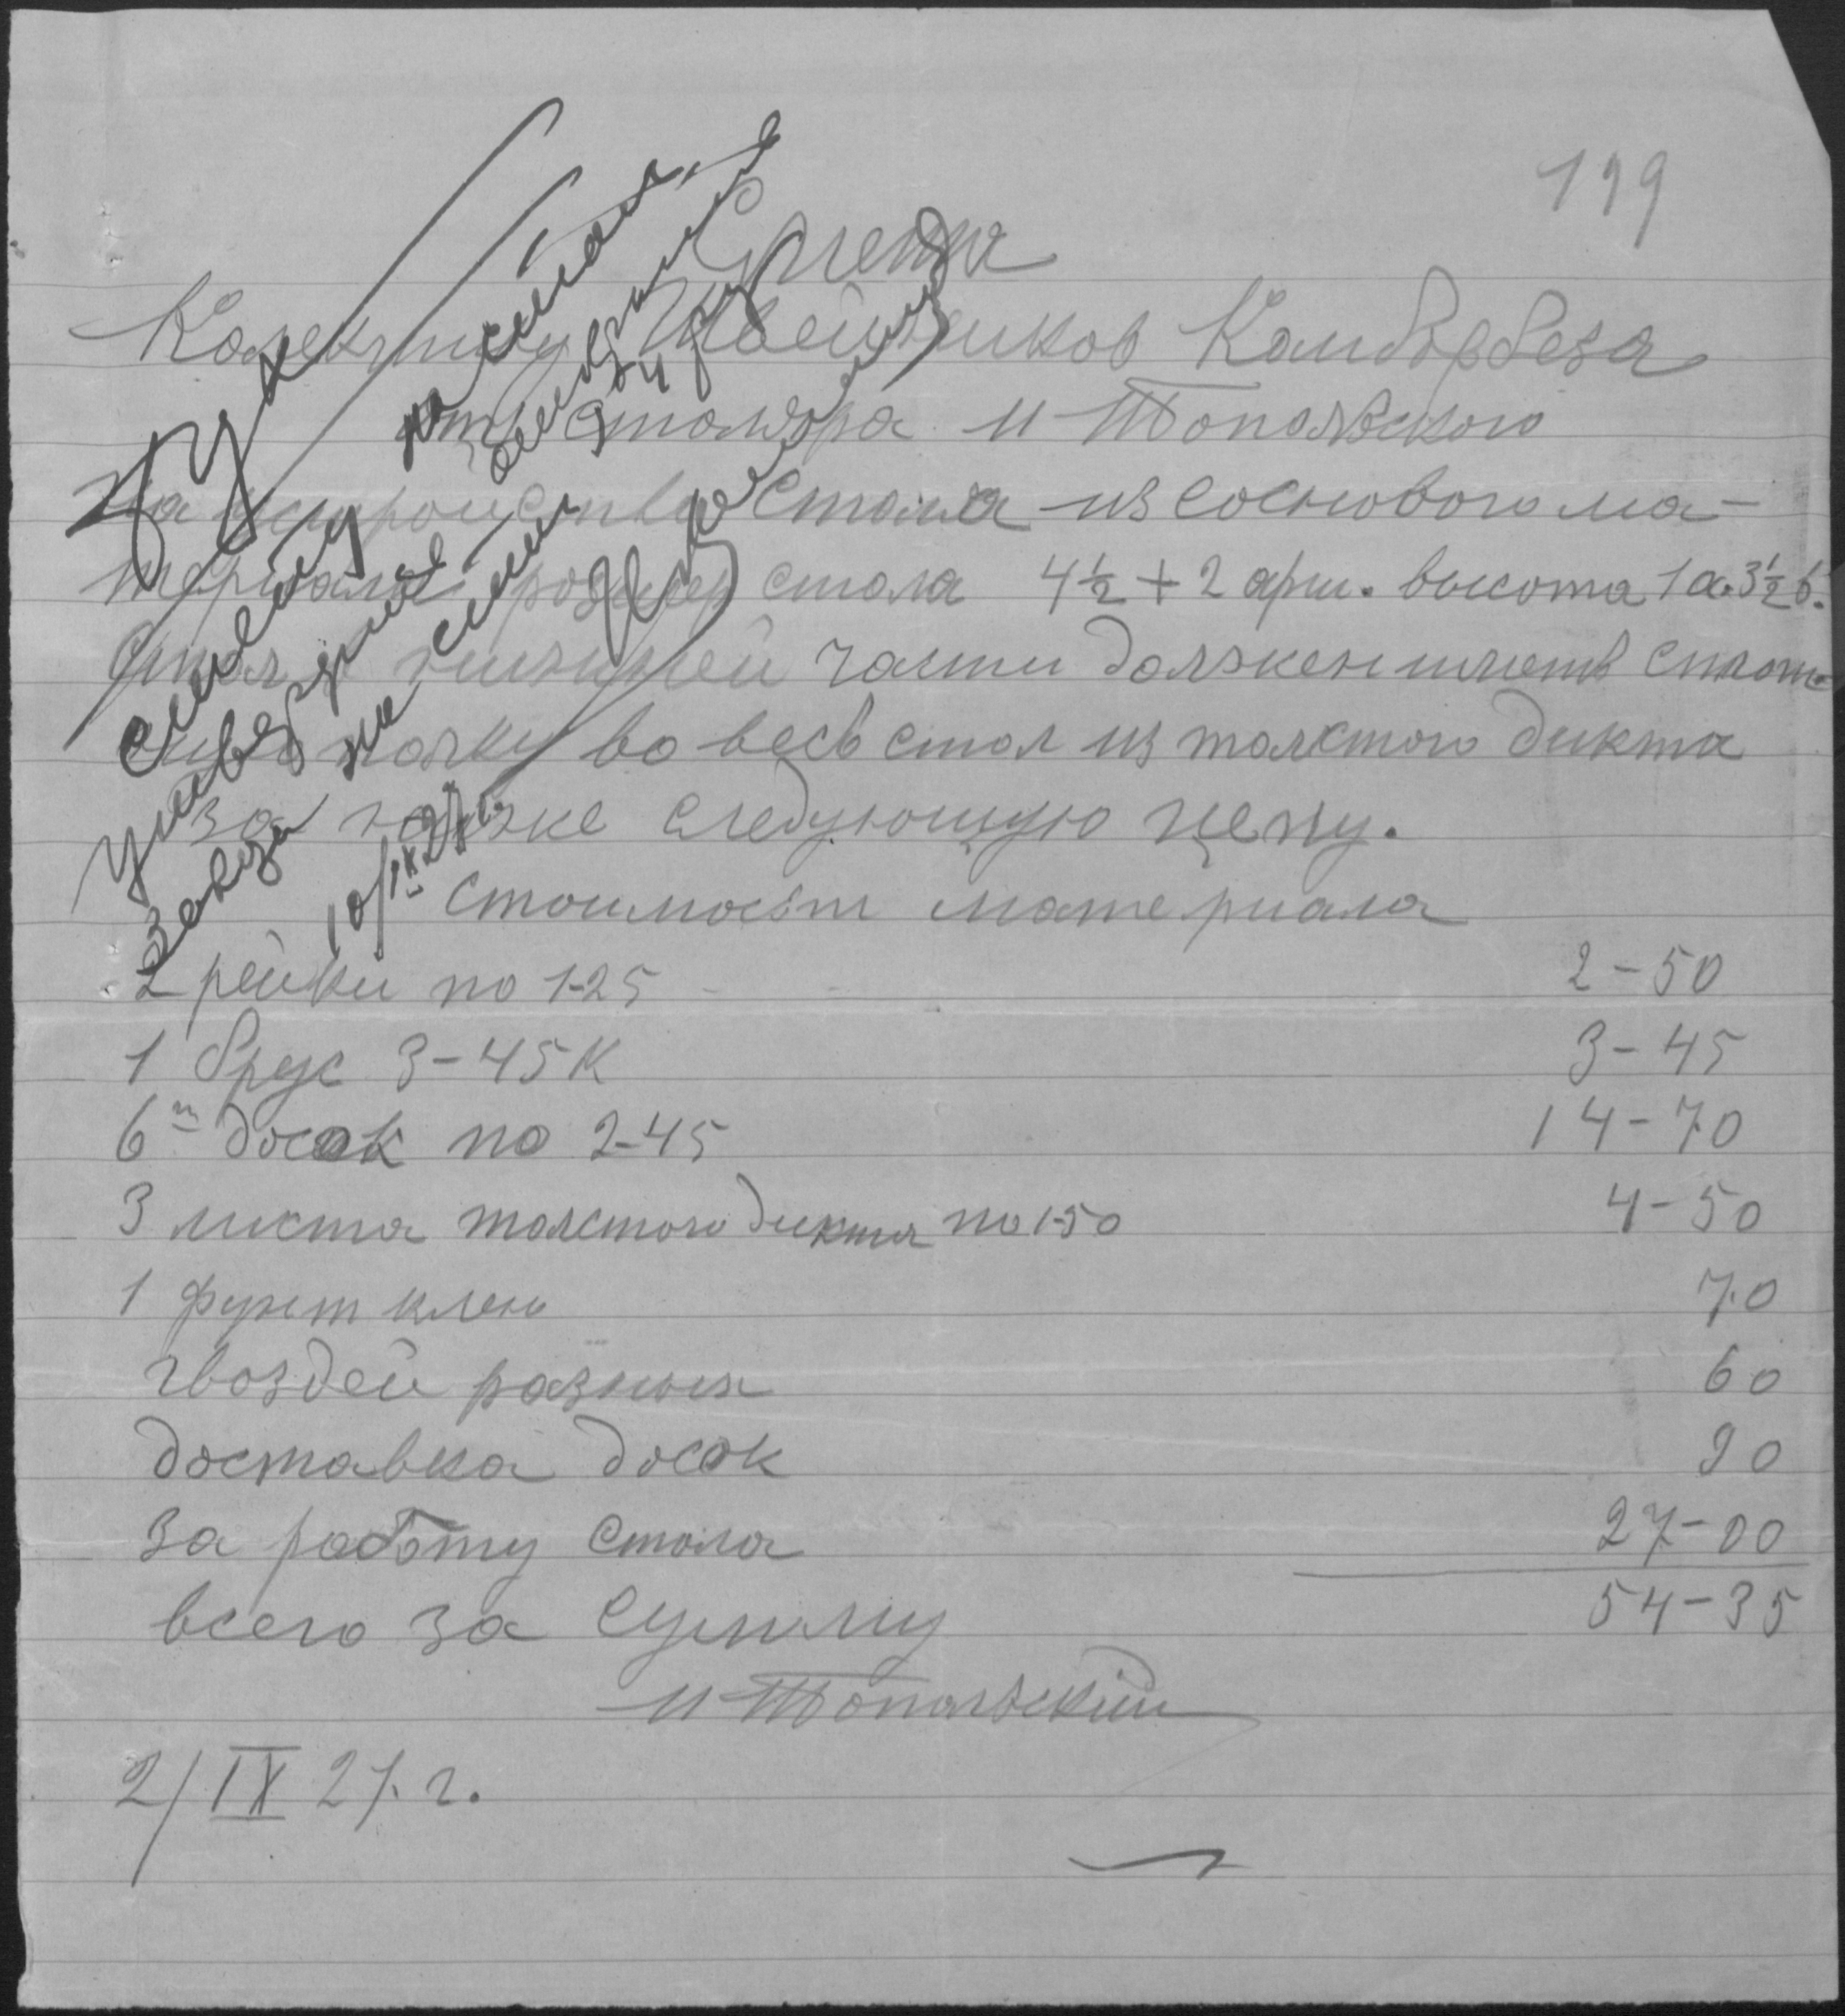 199
Смета
Колективу Швейников Камборбеза
от столяра И Топольского
на устройства стола из соснового ма-
териала розмер стола 4½ + 2 арш. высота 1 а. 3½ в.
Стол нижней части должен иметь сплош-
полку во весь стол из толстого дикта
за также следующую цену.
Стоимость материала
2 рейки по 1-25 2-50
1 брус 3-45 к 3-45
6т досок по 2-45 14-70
3 листа толстого дикта по 1-50 4-50
1 фунт клею 70
гвоздей разных 60
доставка досок 90
за работу стола 27-00
всего за сумму 54-35
И Топольский
2/IX 27. г.
смету
на стол
утвердить
заказ
на сумму
10/IX 27